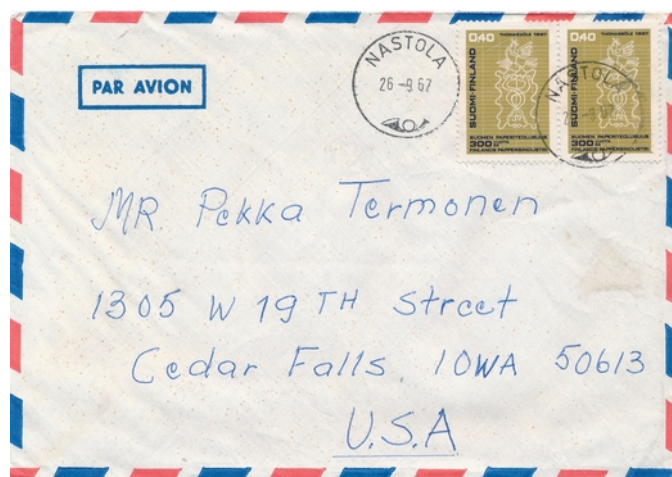 PAR AVION
NASTOLA
26-9.67
0,40
SUOMI-FINLAND
SUOMEN PAPERITEOLLISUUS
300
FINLANDS PAPPERSINDUSTRI
0,40
SUOMI-FINLAND
SUOMEN PAPERITEOLLISUUS
300
FINLANDS PAPPERSINDUSTRI
NASTOLA
MR Pekka Termonen
1305 W 19 TH Street
Cedar Falls, IOWA 50613
U.S.A